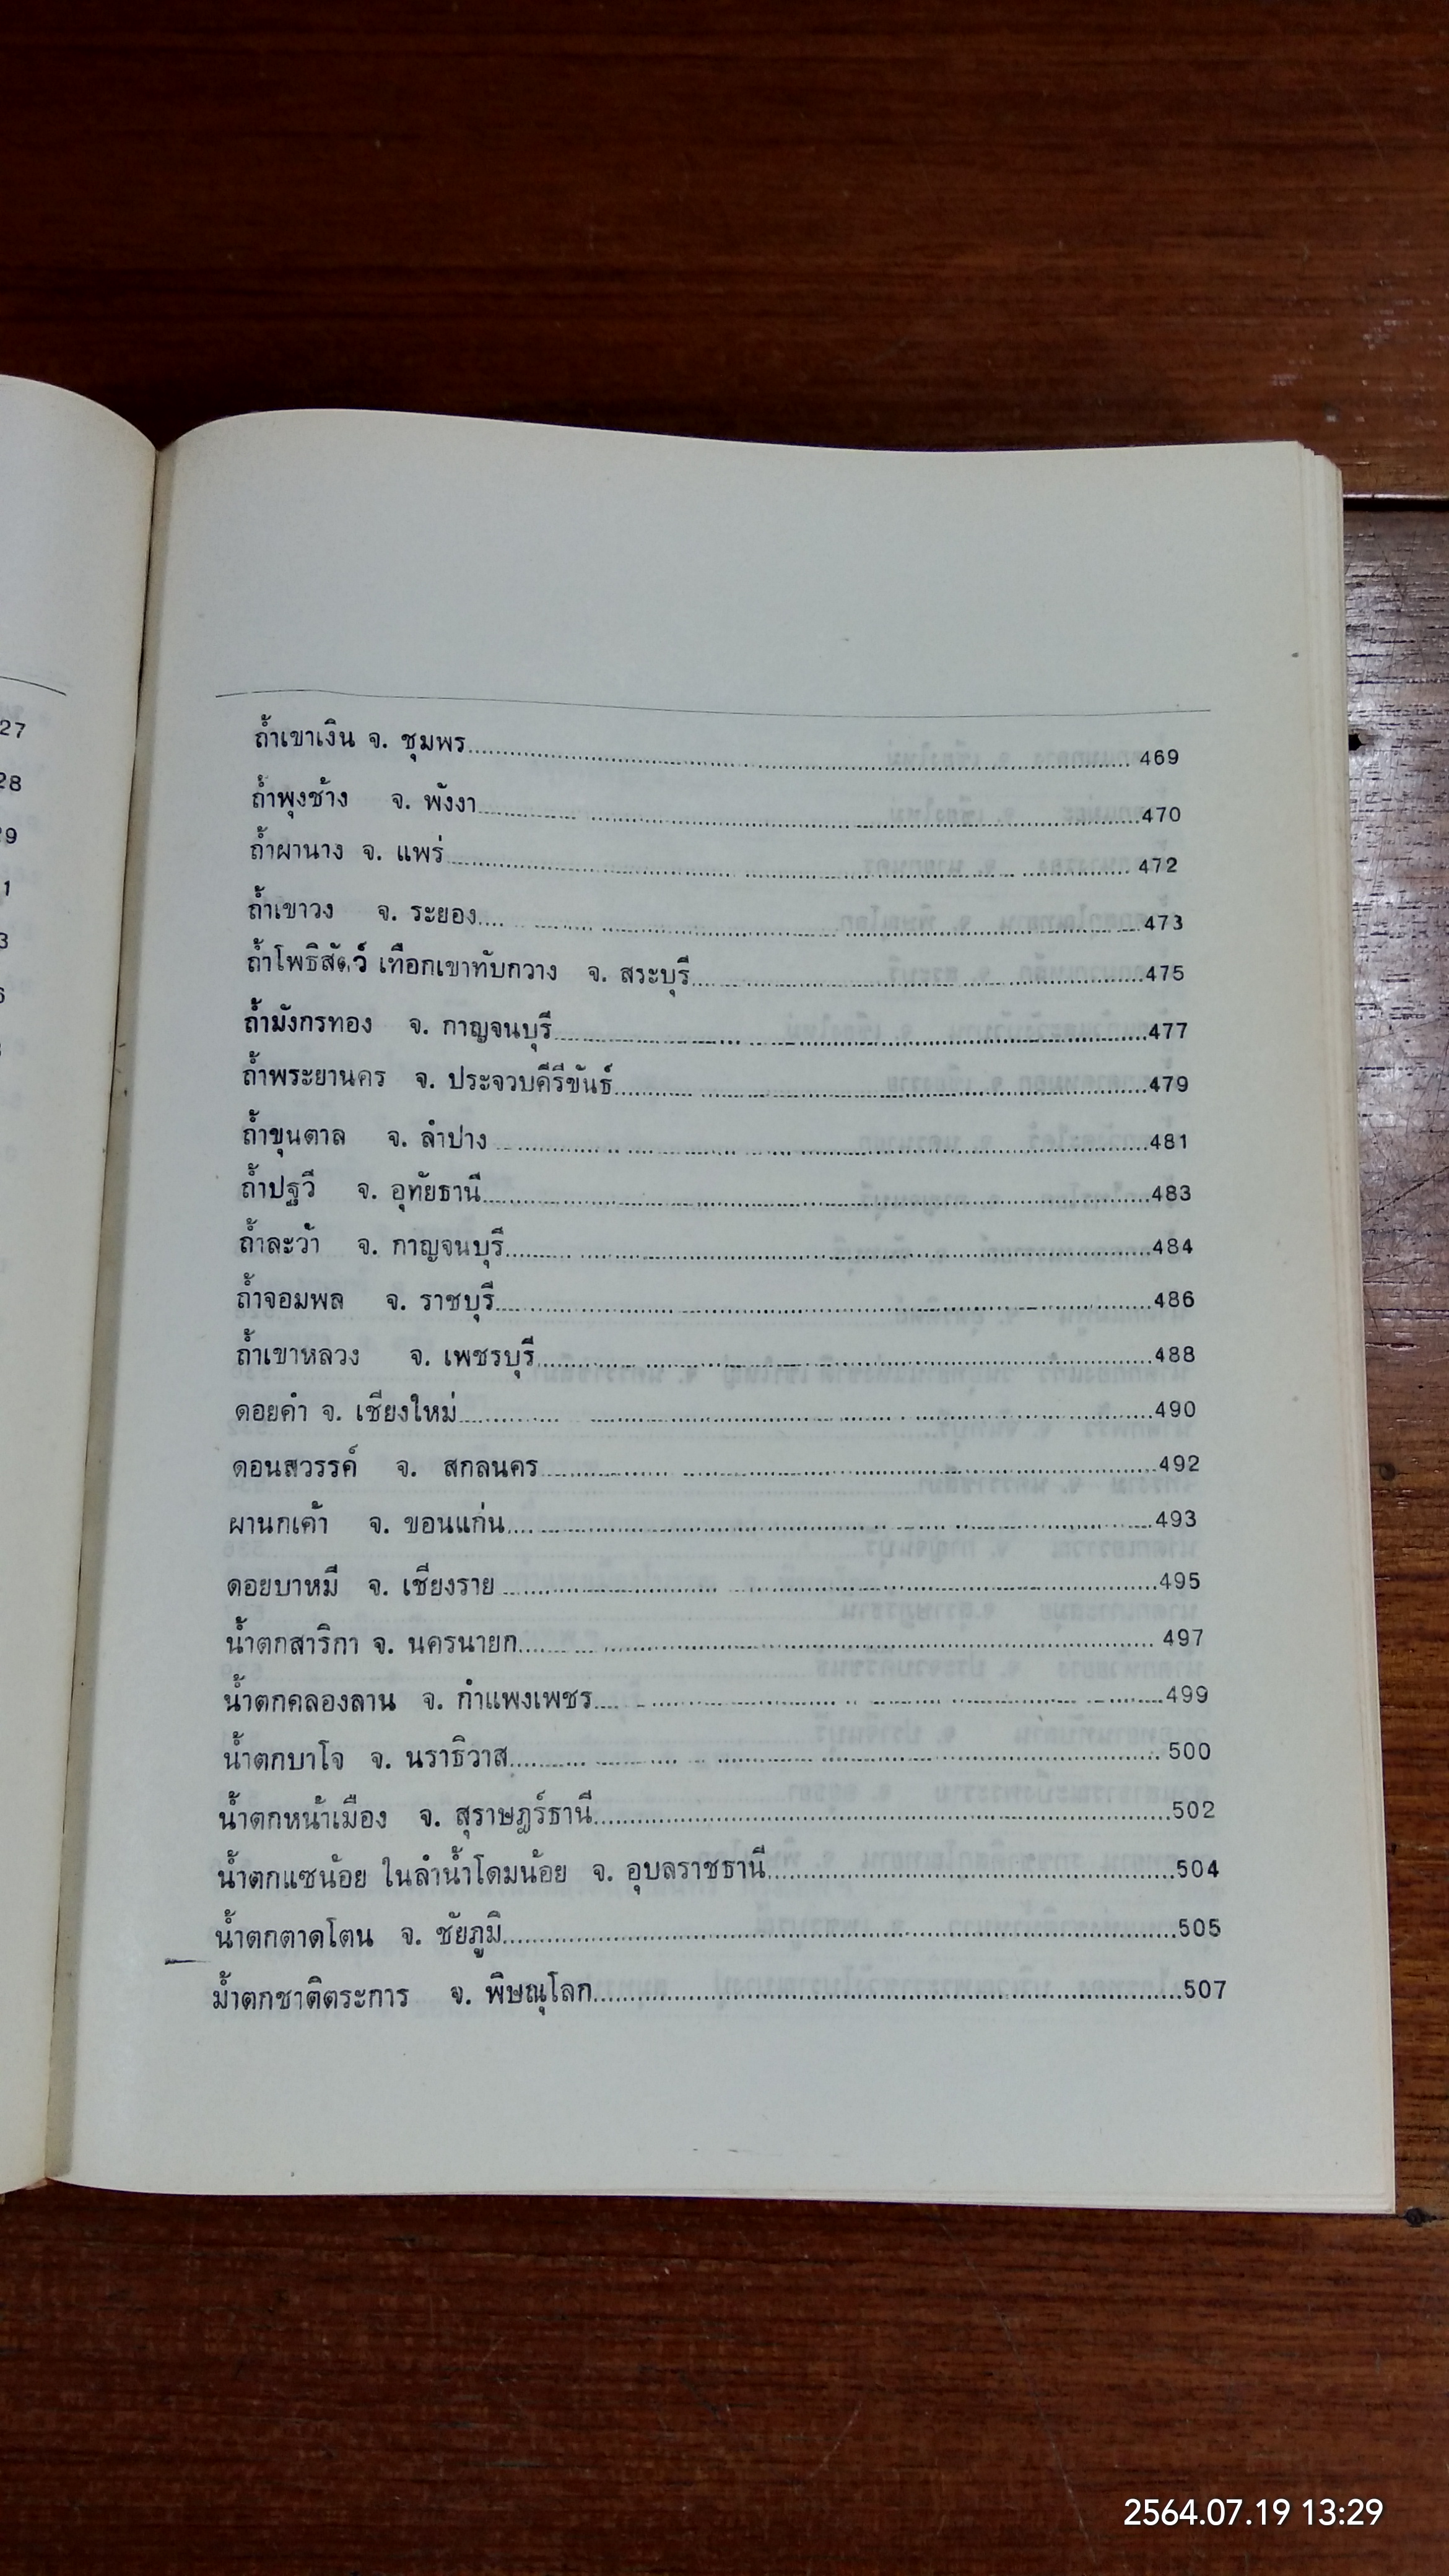 ถ้ำเขาเงิน จ. ชุมพร 469
ถ้ำพุงช้าง จ. พังงา 470
ถ้ำผานาง จ. แพร่ 472
ถ้ำเขาวง จ. ระยอง 473
ถ้ำโพธิสัตว์ เทือกเขาทับกวาง จ. สระบุรี 475
ถ้ำมังกรทอง จ. กาญจนบุรี 477
ถ้ำพระยานคร จ. ประจวบคีรีขันธ์ 479
ถ้ำขุนตาล จ. ลำปาง 481
ถ้ำปฐวี จ. อุทัยธานี 483
ถ้ำละว้า จ. กาญจนบุรี 484
ถ้ำจอมพล จ. ราชบุรี 486
ถ้ำเขาหลวง จ. เพชรบุรี 488
ดอยคำ จ. เชียงใหม่ 490
ดอนสวรรค์ จ. สกลนคร 492
ผานกเค้า จ. ขอนแก่น 493
ดอยบาหมี จ. เชียงราย 495
น้ำตกสาริกา จ. นครนายก 497
น้ำตกคลองลาน จ. กำแพงเพชร 499
น้ำตกบาโจ จ. นราธิวาส 500
น้ำตกหน้าเมือง จ. สุราษฎร์ธานี 502
น้ำตกแซน้อย ในลำน้ำโดมน้อย จ. อุบลราชธานี 504
น้ำตกตาดโตน จ. ชัยภูมิ 505
ม้ำตกชาติตระการ จ. พิษณุโลก 507
2564.07.19 13:29